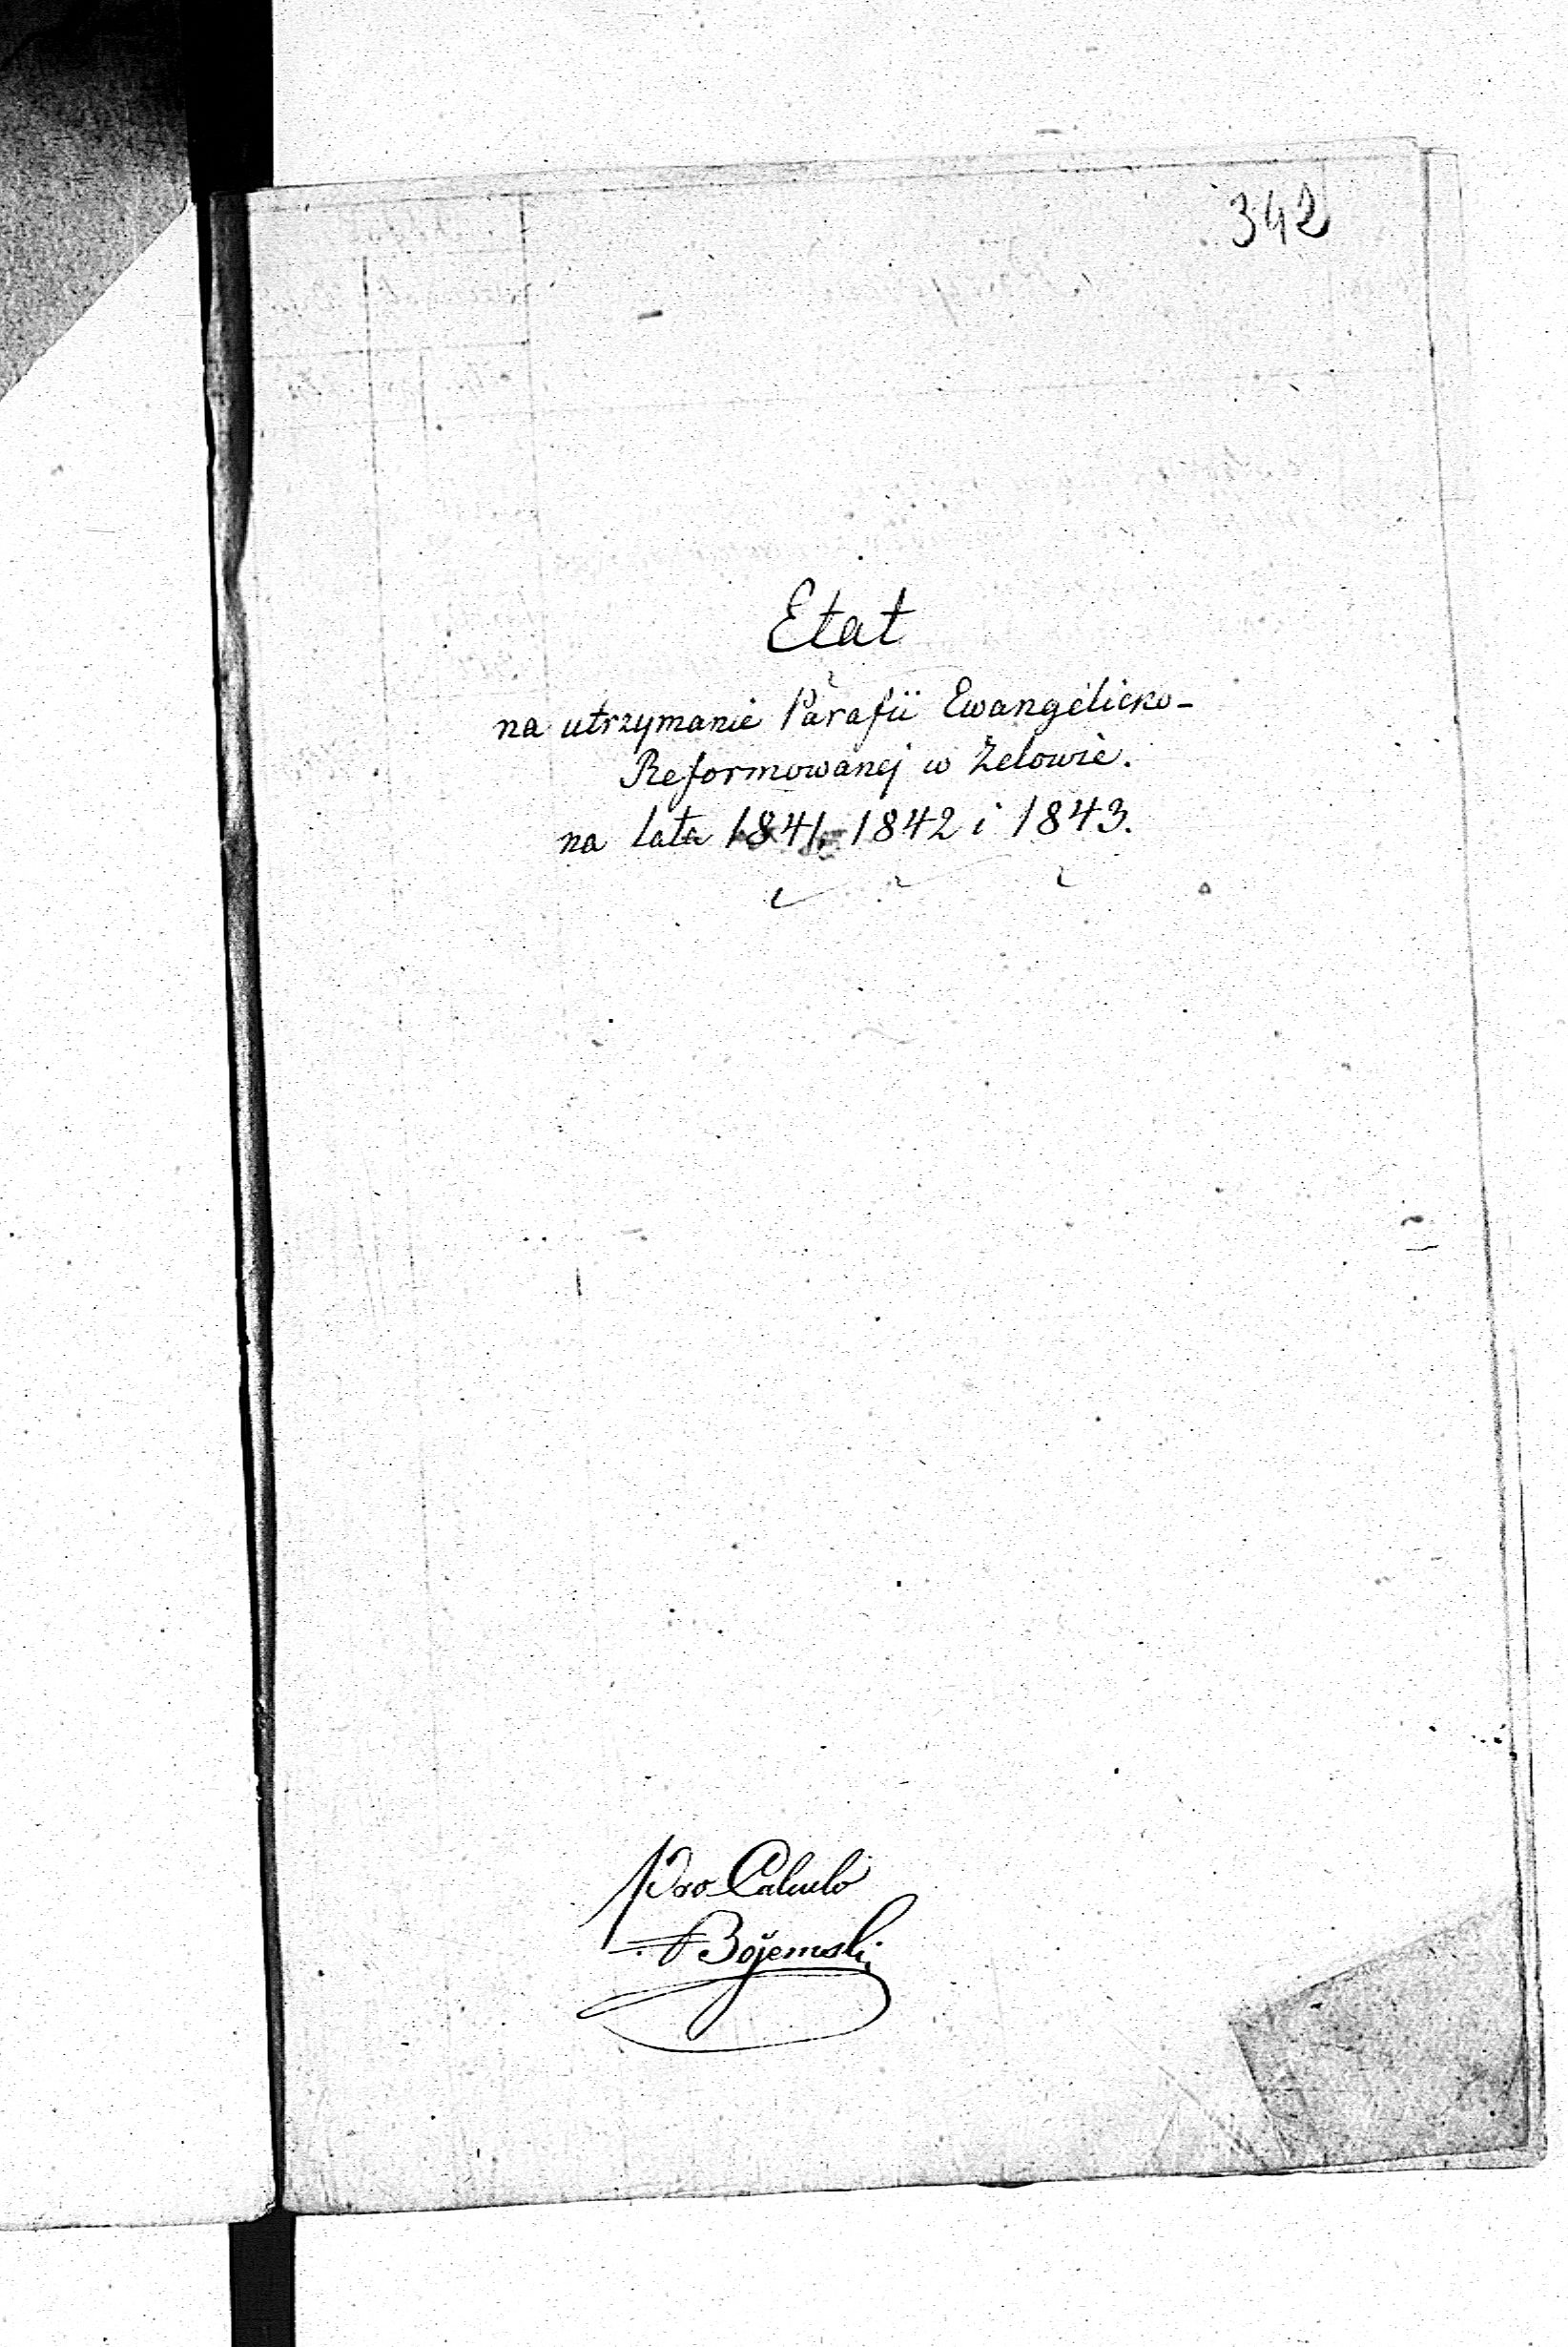 342
Etat
na utrzymanie Parafii Ewangelicko-
Reformowanej w Zelowie.
na lata 1841, 1842 i 1843.
Pro Calculo
Bojemski